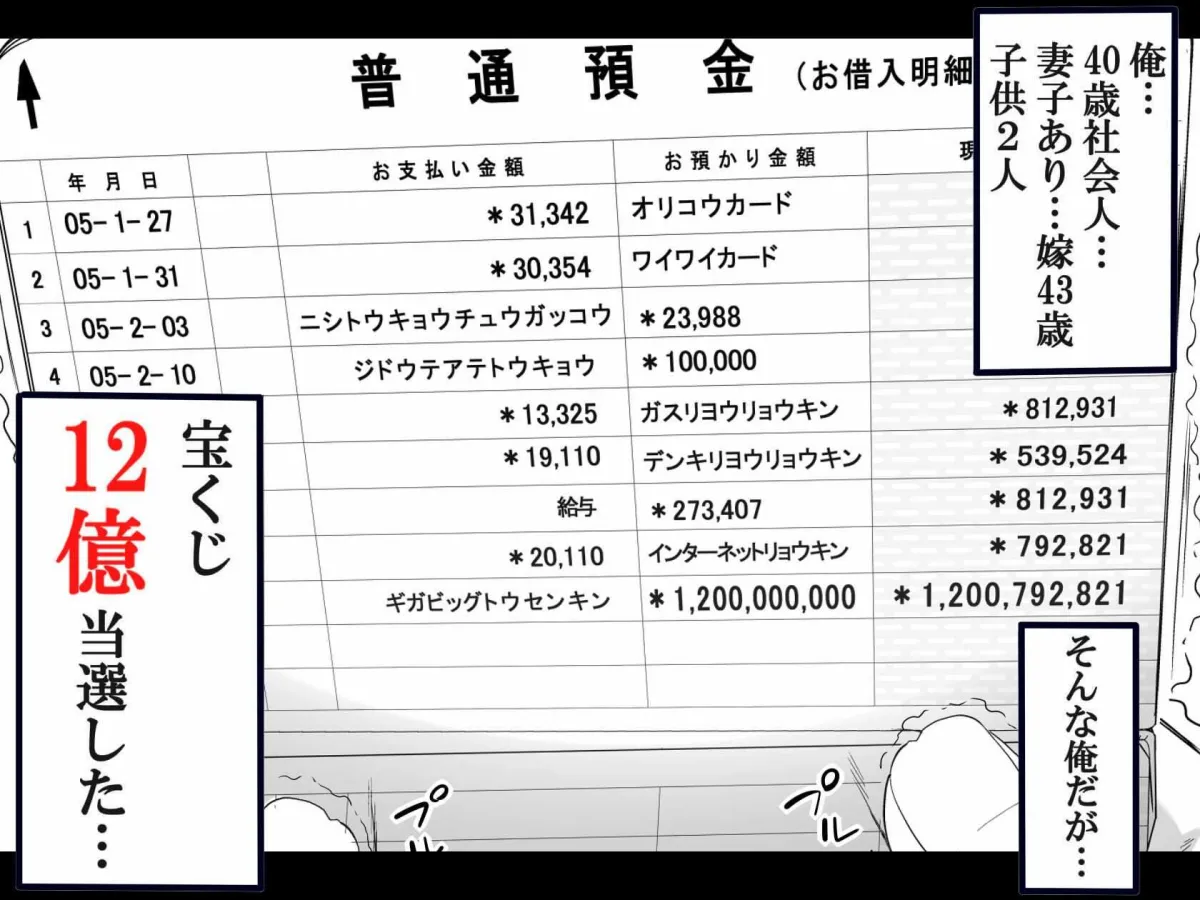 俺…
40歳社会人…
妻子あり…嫁43歳
子供2人
普通預金(お借入明細
年月日 お支払い金額 お預かり金額 現
1 05-1-27 *31,342 オリコウカード
2 05-1-31 *30,354 ワイワイカード
3 05-2-03 ニシトウキョウチュウガッコウ *23,988
4 05-2-10 ジドウテアテトウキョウ *100,000
*13,325 ガスリヨウリョウキン *812,931
*19,110 デンキリヨウリョウキン *539,524
給与 *273,407 *812,931
*20,110 インターネットリョウキン *792,821
ギガビッグトウセンキン *1,200,000,000 *1,200,792,821
そんな俺だが…
宝くじ
12億当選した…
プル
プル